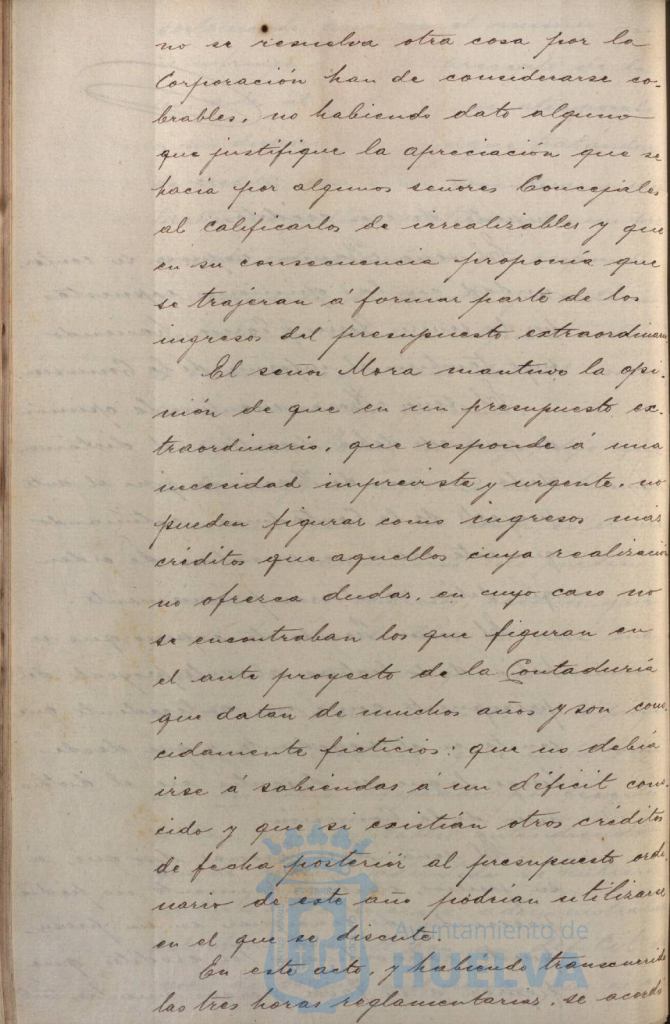 no se resuelva otra cosa por la
Corporación han de considerarse co-
brables, no habiendo dato alguno
que justifique la apreciación que se
hacia por algunos señores Concejales
al calificarlos de irrealizables y que
en su consecuencia proponía que
se trajeran á formar parte de los
ingresos del presupuesto extraordinario
El señor Mora mantuvo la opi-
nión de que en un presupuesto ex-
traordinario, que responde á una
necesidad imprevista y urgente, no
pueden figurar como ingresos más
créditos que aquellos cuya realización
no ofrezca dudas, en cuyo caso no
se encontraban los que figuran en
el ante proyecto de la Contaduría
que datan de muchos años y son cono-
cidamente ficticios: que no debía
irse á sabiendas á un déficit cono-
cido y que si existián otros créditos
de fecha posterior al presupuesto ordi-
nario de este año podrían utilizarse
en el que se discute.
En este acto, y habiendo transcurrido
las tres horas reglamentarias, se acordó
Ayuntamiento de
HUELVA